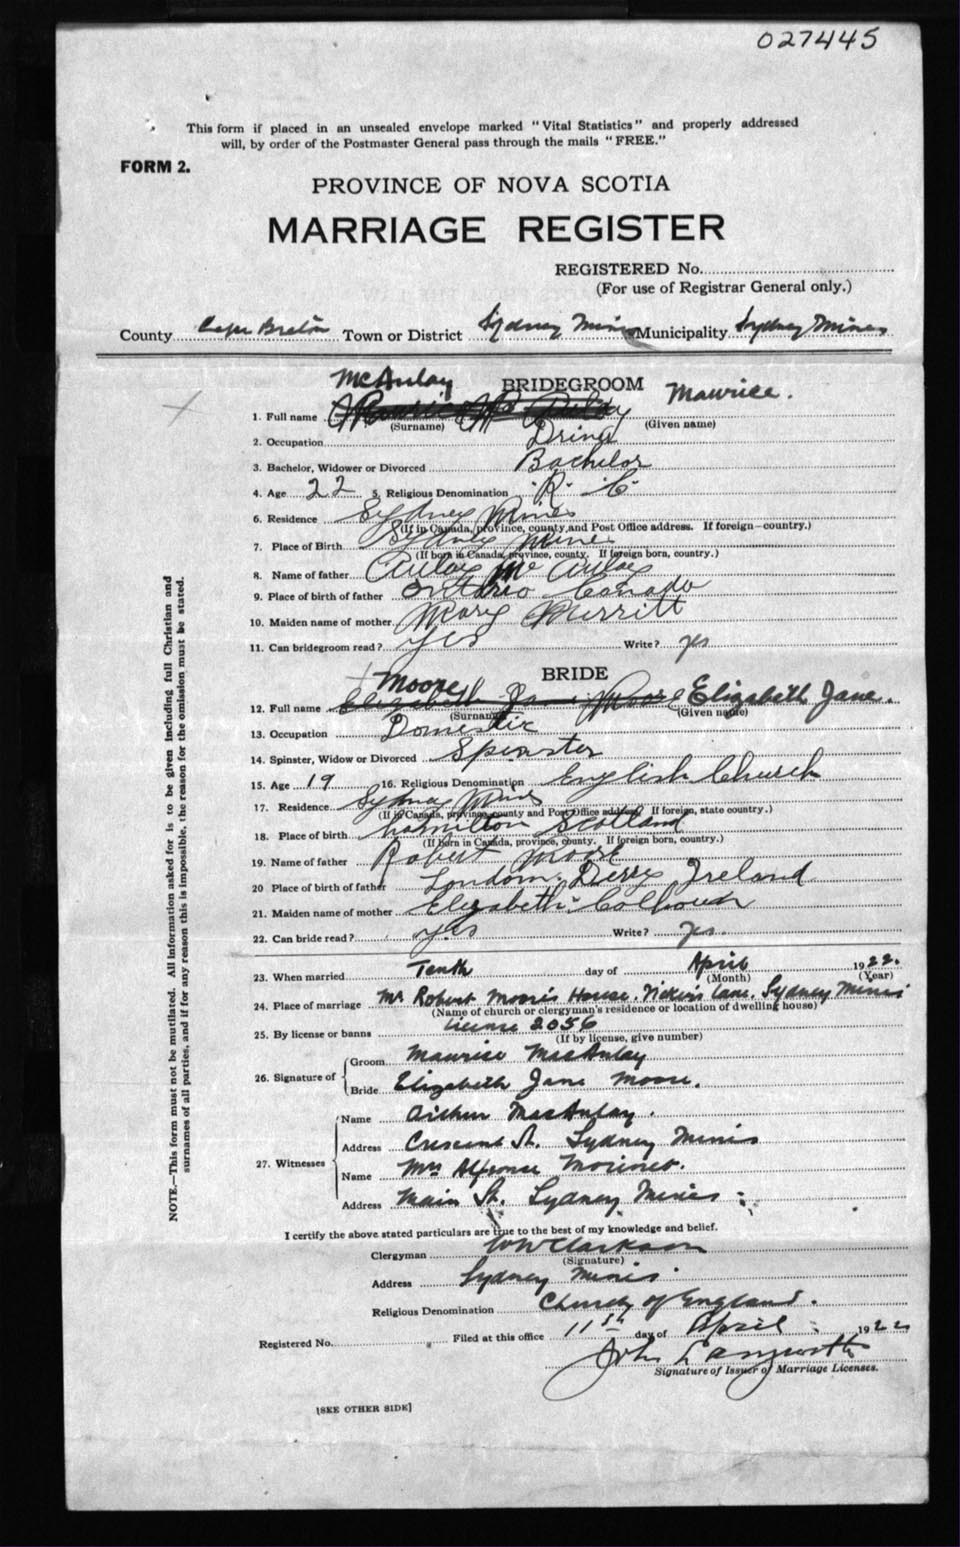 027445
This form if placed in an unsealed envelope marked "Vital Statistics" and properly addressed
will, by order of the Postmaster General pass through the mails "FREE."
FORM 2.
PROVINCE OF NOVA SCOTIA
MARRIAGE REGISTER
REGISTERED No.
(For use of Registrar General only.)
County Cape Breton Town or District Sydney Mines Municipality Sydney Mines
BRIDEGROOM
McAulay Maurice.
1. Full name
(Surname) (Given name)
2. Occupation Driver
3. Bachelor, Widower or Divorced Bachelor
4. Age 22 5. Religious Denomination R. C.
6. Residence Sydney Mines
(If in Canada, province, county and Post Office address. If foreign—country.)
7. Place of Birth Sydney Mines
(If born in Canada, province, county. If foreign born, country.)
8. Name of father Aulay Mc Aulay
9. Place of birth of father Ontario Canada
10. Maiden name of mother Mary Merritt
11. Can bridegroom read? yes Write? yes
BRIDE
Moore
12. Full name Elizabeth Jane Moore Elizabeth Jane.
(Surname) (Given name)
13. Occupation Domestic
14. Spinster, Widow or Divorced Spinster
15. Age 19 16. Religious Denomination English Church
17. Residence Sydney Mines
(If in Canada, province, county and Post Office address If foreign, state country.)
18. Place of birth Hamilton Scotland
(If born in Canada, province, county. If foreign born, country.)
19. Name of father Robert Moore
20 Place of birth of father London. Derry Ireland
21. Maiden name of mother Elizabeth Colhoun
22. Can bride read? yes Write? yes.
23. When married Tenth day of April 1922.
(Month) (Year)
24. Place of marriage Mr Robert Moore's House. Vickers Lane. Sydney Mines
(Name of church or clergyman's residence or location of dwelling house)
25. By license or banns License 2056
(If by license, give number)
26. Signature of
Groom Maurice MacAulay
Bride Elizabeth Jane Moore.
27. Witnesses
Name MacAulay.
Address Crescent St. Sydney Mines
Name Mrs Alfonse
Address Main St. Sydney Mines
I certify the above stated particulars are true to the best of my knowledge and belief.
Clergyman
(Signature)
Address Sydney Mines.
Religious Denomination Church of England.
Registered No. Filed at this office 11th day of April 1922
John Langworth
Signature of Issuer of Marriage Licenses.
[SEE OTHER SIDE]
NOTE.—This form must not be mutilated. All information asked for is to be given including full Christian and
surnames of all parties, and if for any reason this is impossible, the reason for the omission must be stated.